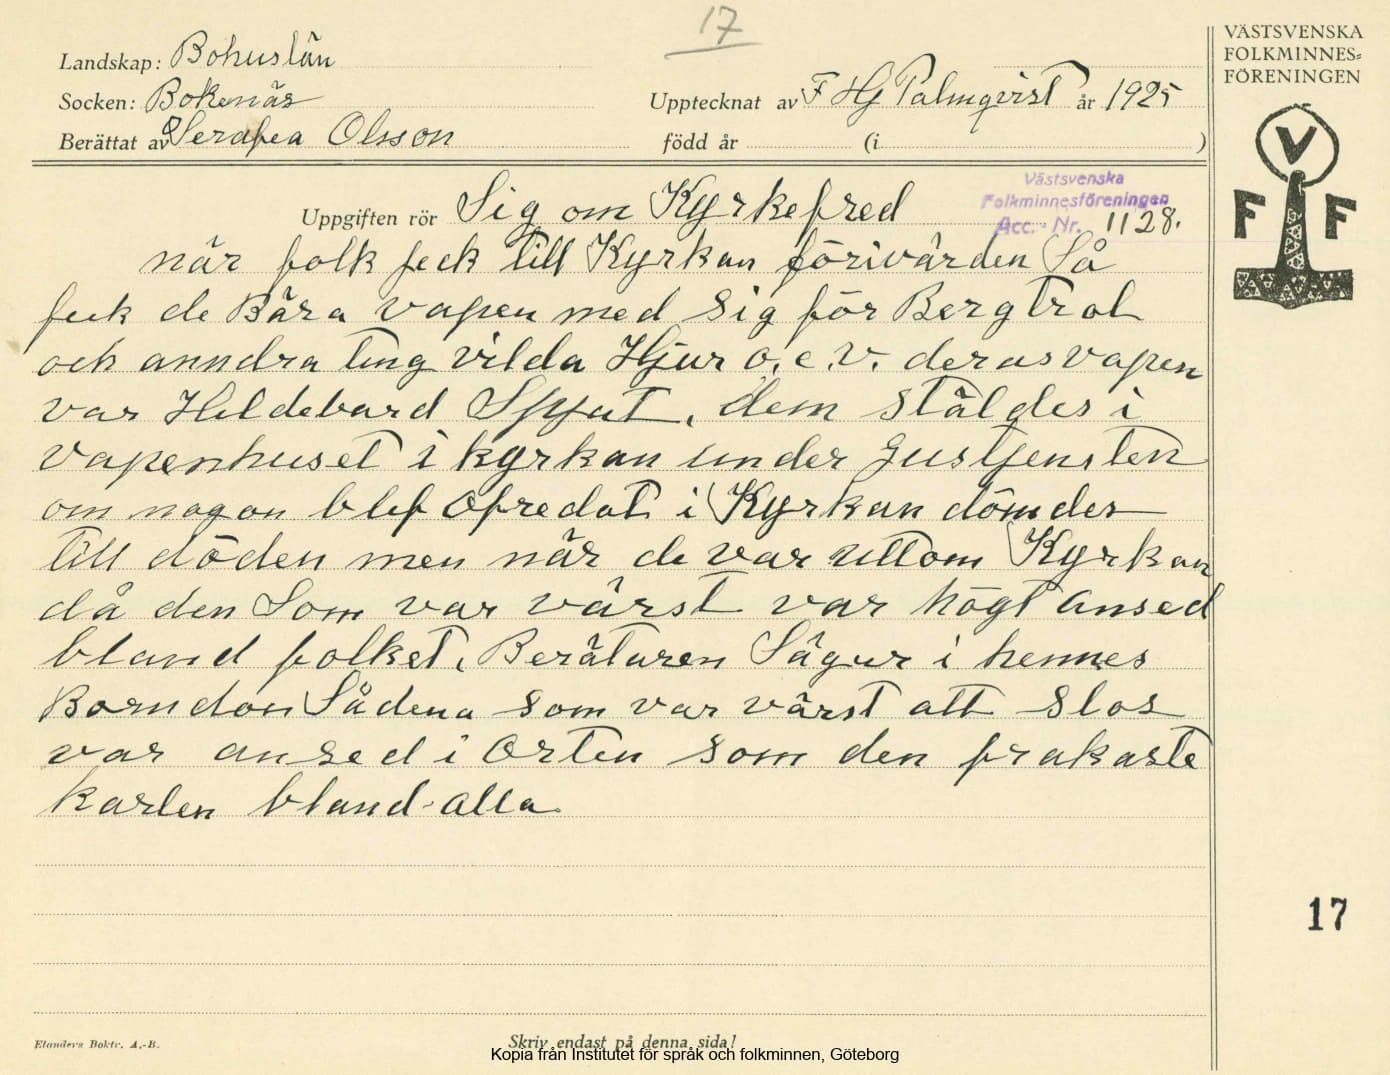 17
Landskap: Bohuslän
Socken: Bokenäs
Upptecknat av F Hj Palmqvist år 1925
Berättat av Serafea Olsson
född år (i )
VÄSTSVENSKA
FOLKMINNES=
FÖRENINGEN
V
F F
Västsvenska
Folkminnesföreningen
Acc. - Nr. 1128.
Uppgiften rör Sig om Kyrkefred
när folk feck till Kyrkan förivärden Så
feck de Bära vapen med sig för Bergtrol
och anndra ting vilda Hjur o. c. v. deras vapen
var Hildebard Spjut, dem stäldes i
vapenhuset i kyrkan under Gustjensten
om nogon blef ofredat i Kyrkan dömdes
till döden men när de var uttom Kyrkan
då den Som var värst var högt ansed
bland folket, Berätaren Sägur i hennes
Borndon Sådena som var värst att slos
var ansed i orten som den frakaste
karlen bland alla
17
Elanders Boktr. A.-B.
Skriv endast på denna sida!
Kopia från Institutet för språk och folkminnen, Göteborg